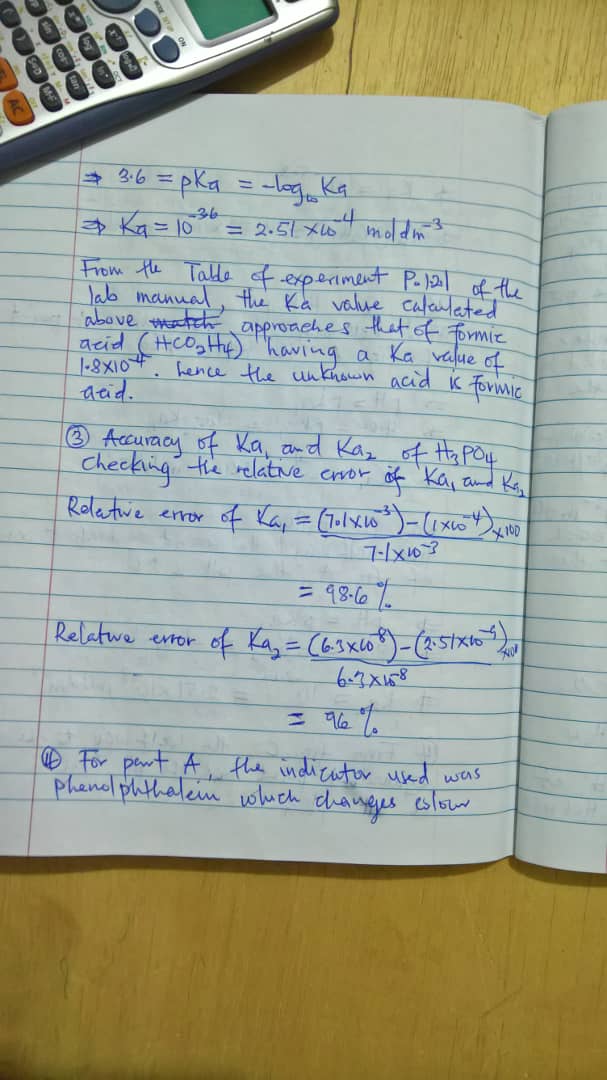 ON
AC
⇒ 3.6 = pKa = -log₁₀ Ka
⇒ Ka = 10⁻³·⁶ = 2.51 x10⁻⁴ moldm⁻³
From the Table of experiment P.121 of the
lab manual, the Ka value calculated
above match approaches that of formic
acid (HCO₂H4) having a Ka value of
1.8x10⁻⁴. hence the unknown acid is formic
acid.
③ Accuracy of Ka₁ and Ka₂ of H₃PO₄
Checking the relative error of Ka₁ and Ka₂
Relative error of Ka₁ = (7.1x10⁻³)-(1x10⁻⁴) x100
7.1x10⁻³
= 98.6 %
Relative error of Ka₂ = (6.3x10⁻⁸)-(2.51x10⁻⁹) x100
6.3x10⁻⁸
= 96 %
④ For part A, the indicator used was
phenolphthalein which changes colour